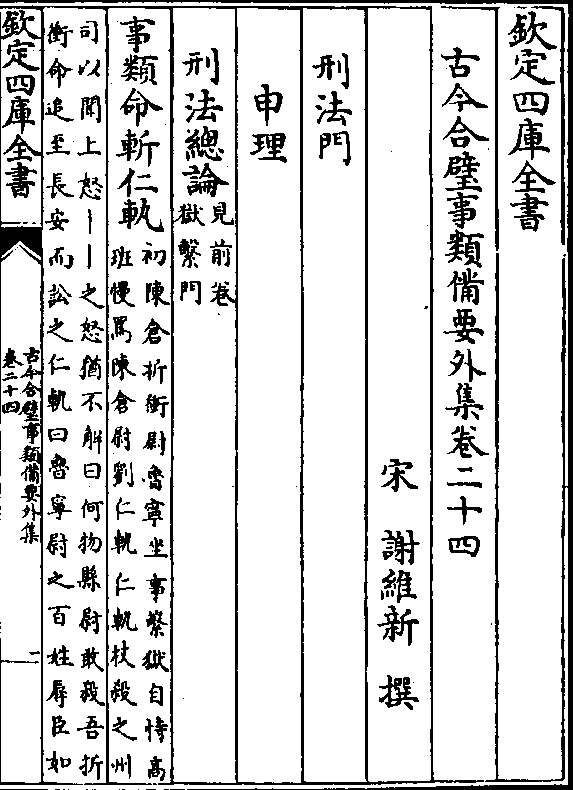 欽定四庫全書
古今合璧事類備要外集卷二十四
宋 謝維新 撰
刑法門
申理
刑法總論
見前卷
獄繫門
事類命斬仁軌
初陳倉折衝尉魯寧坐事繫獄自恃高
班慢罵陳倉尉劉仁軌仁軌杖殺之州
司以聞上怒〡〡之怒猶不解曰何物縣尉敢殺吾折
衝命追至長安而訟之仁軌曰魯寧尉之百姓辱臣如
欽定四庫全書
古今合璧事類備要外集
卷二十四
一